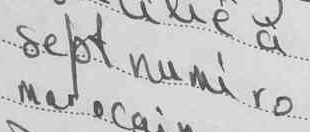 à
sept numiro
marocain